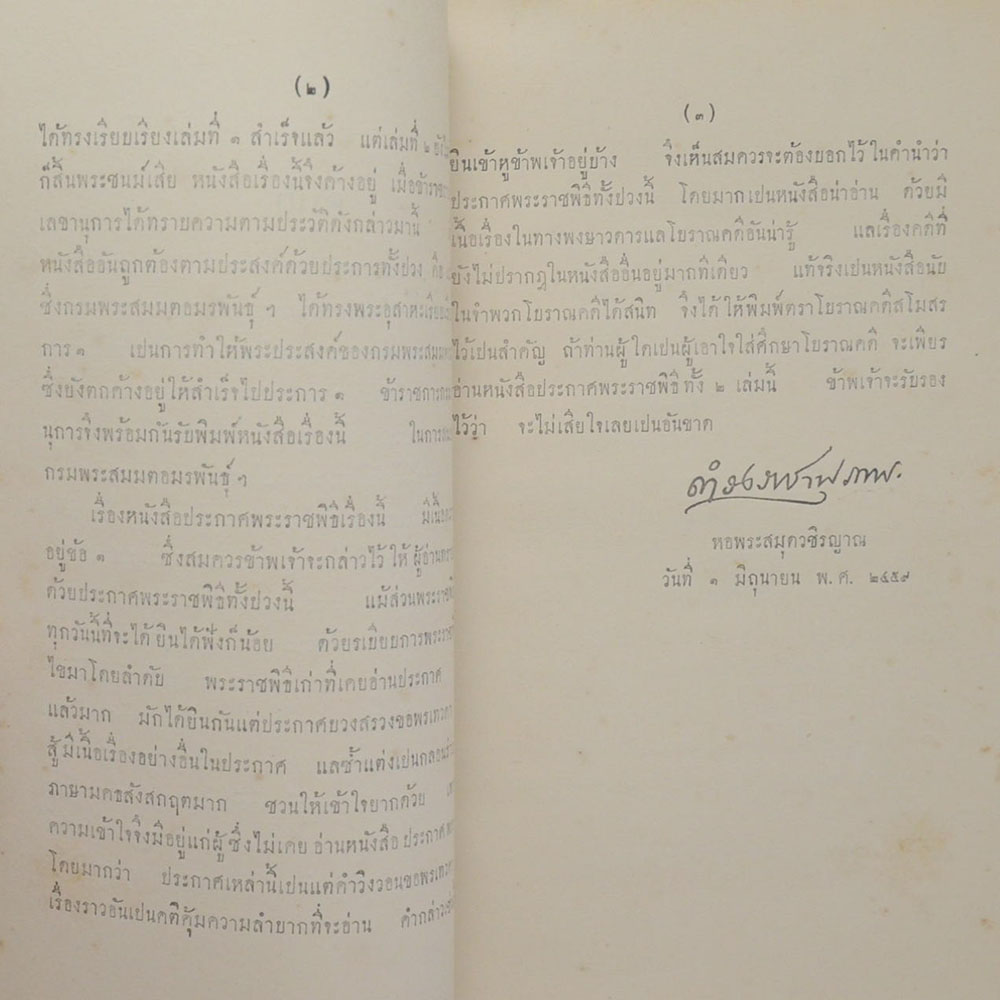 (๒)
ได้ทรงเรียบเรียงเล่มที่ ๑ สำเร็จแล้ว แต่เล่มที่ ๒ ยัง
ก็สิ้นพระชนม์เสีย หนังสือเรื่องนี้จึงค้างอยู่ เมื่อข้าราช
เลขานุการได้ทราบความตามประวัติดังกล่าวมานี้
หนังสืออันถูกต้องตามประสงค์ด้วยประการทั้งปวง คือ
ซึ่งกรมพระสมมตอมรพันธุ์ ฯ ได้ทรงพระอุสาหะเรียบ
การ ๑ เป็นการทำให้พระประสงค์ของกรมพระสมมต
ซึ่งยังตกค้างอยู่ให้สำเร็จไปประการ ๑ ข้าราชการกรม
นุการจึงพร้อมกันรับพิมพ์หนังสือเรื่องนี้ ในการ
กรมพระสมมตอมรพันธุ์ ฯ
เรื่องหนังสือประกาศพระราชพิธีเรื่องนี้ มีเนื้อ
อยู่ข้อ ๑ ซึ่งสมควรข้าพเจ้าจะกล่าวไว้ ให้ ผู้อ่าน
ด้วยประกาศพระราชพิธีทั้งปวงนี้ แม้ส่วนพระราช
ทุกวันนี้ที่จะได้ ยินได้ฟังก็น้อย ด้วยรเบียบการพระราช
ไขมาโดยลำดับ พระราชพิธีเก่าที่เคยอ่านประกาศ
แล้วมาก มักได้ยินกันแต่ประกาศบวงสรวงขอพรเทวดา
สู้ มีเนื้อเรื่องอย่างอื่นในประกาศ แลซ้ำแต่งเปนกลอน
ภาษามคธสังสกฤตมาก ชวนให้เข้าใจยากด้วย
ความเข้าใจจึงมีอยู่แก่ผู้ ซึ่งไม่เคย อ่านหนังสือ ประกาศ
โดยมากว่า ประกาศเหล่านี้เปนแต่คำวิงวอนขอพรเทวดา
เรื่องราวอันเปนคติคุ้มความลำบากที่จะอ่าน คำกล่าว
(๓)
ยินเข้าหูข้าพเจ้าอยู่บ้าง จึงเห็นสมควรจะต้องบอกไว้ ในคำนำว่า
ประกาศพระราชพิธีทั้งปวงนี้ โดยมาก เปนหนังสือน่าอ่าน ด้วยมี
เนื้อเรื่องในทางพงษาวดารแลโบราณคดีอันน่ารู้ แลเรื่องคดีที่
ยังไม่ปรากฎในหนังสืออื่นอยู่มากทีเดียว แท้จริงเปนหนังสือนับ
ในจำพวกโบราณคดีได้สนิท จึงได้ ให้พิมพ์ตราโบราณคดีสโมสร
ไว้เปนสำคัญ ถ้าท่านผู้ ใดเปนผู้เอาใจใส่ศึกษาโบราณคดี จะเพียร
อ่านหนังสือประกาศพระราชพิธี ทั้ง ๒ เล่มนี้ ข้าพเจ้าจะรับรอง
ไว้ว่า จะไม่เสียใจเลยเปนอันขาด
ดำรงราชานุภาพ.
หอพระสมุดวชิรญาณ
วันที่ ๑ มิถุนายน พ. ศ. ๒๔๕๙